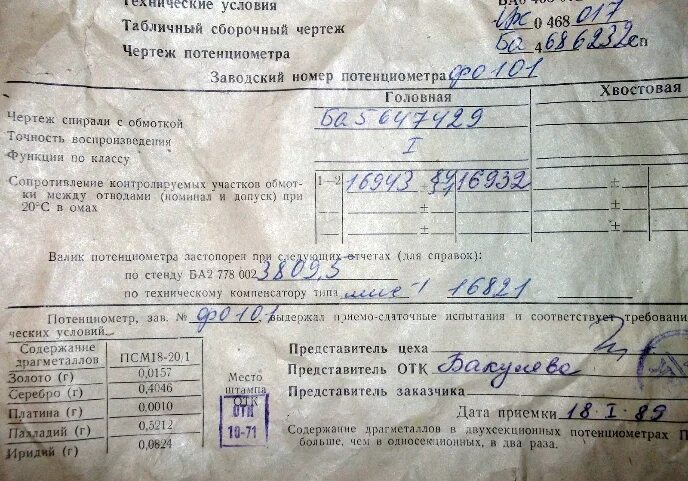 Технические условия
Табличный сборочный чертеж 0 468 017
Чертеж потенциометра Ба 4686232сп
Заводский номер потенциометра ф0101
Головная Хвостовая
Чертеж спирали с обмоткой Ба 5647429
Точность воспроизведения I
Функции по классу
Сопротивление контролируемых участков обмот- 1—2 16943 ± 16932 ±
ки между отводами (номинал и допуск) при ± ±
20°С в омах ± ±
Валик потенциометра застопорен при следующих отчетах (для справок):
по стенду БА2 778 002 3809,5
по техническому компенсатору типа 16821
Потенциометр, зав. № ф0101, выдержал приемо-сдаточные испытания и соответствует требовани-
ческих условий.
Содержание драгметаллов ПСМ18-20/1
Золото (г) 0,0157
Серебро (г) 0,4046
Платина (г) 0,0010
Палладий (г) 0,5212
Иридий (г) 0,0824
Место штампа ОТК
ОТК
10-71
Представитель цеха
Представитель ОТК Бакулева
Представитель заказчика
Дата приемки 18.I.89
Содержание драгметаллов в двухсекционных потенциометрах П
больше, чем в односекционных, в два раза.